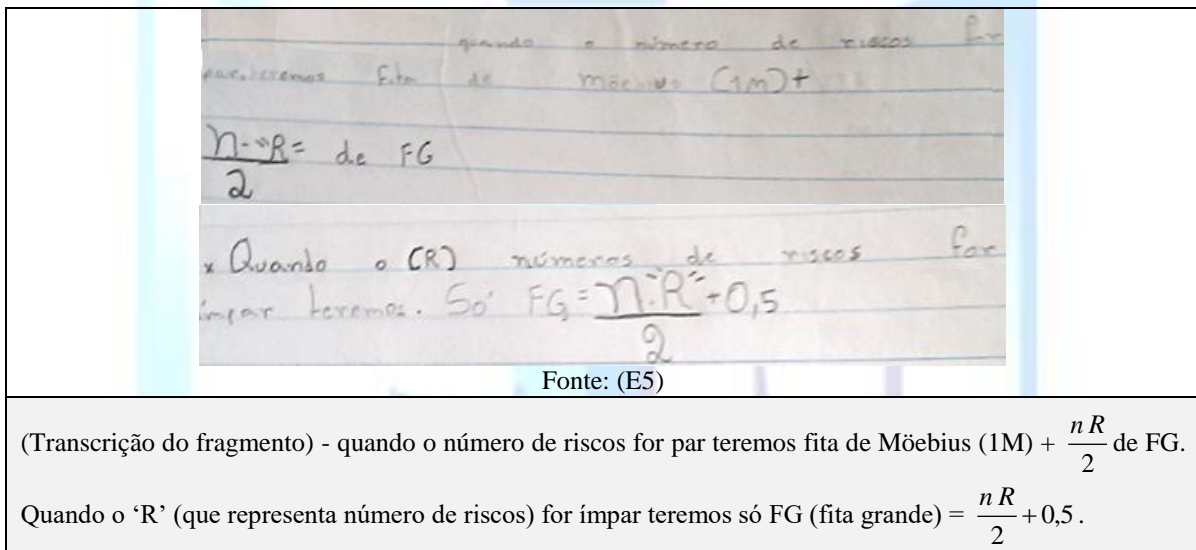 quando o número de riscos for
par teremos fita de möebius (1m)+
n-"R= de FG
2
x Quando o (R) números de riscos for
impar teremos. So' FG = n."R" + 0,5
2
Fonte: (E5)
(Transcrição do fragmento) - quando o número de riscos for par teremos fita de Möebius (1M) + n R / 2 de FG.
Quando o ‘R’ (que representa número de riscos) for ímpar teremos só FG (fita grande) = n R / 2 + 0,5 .